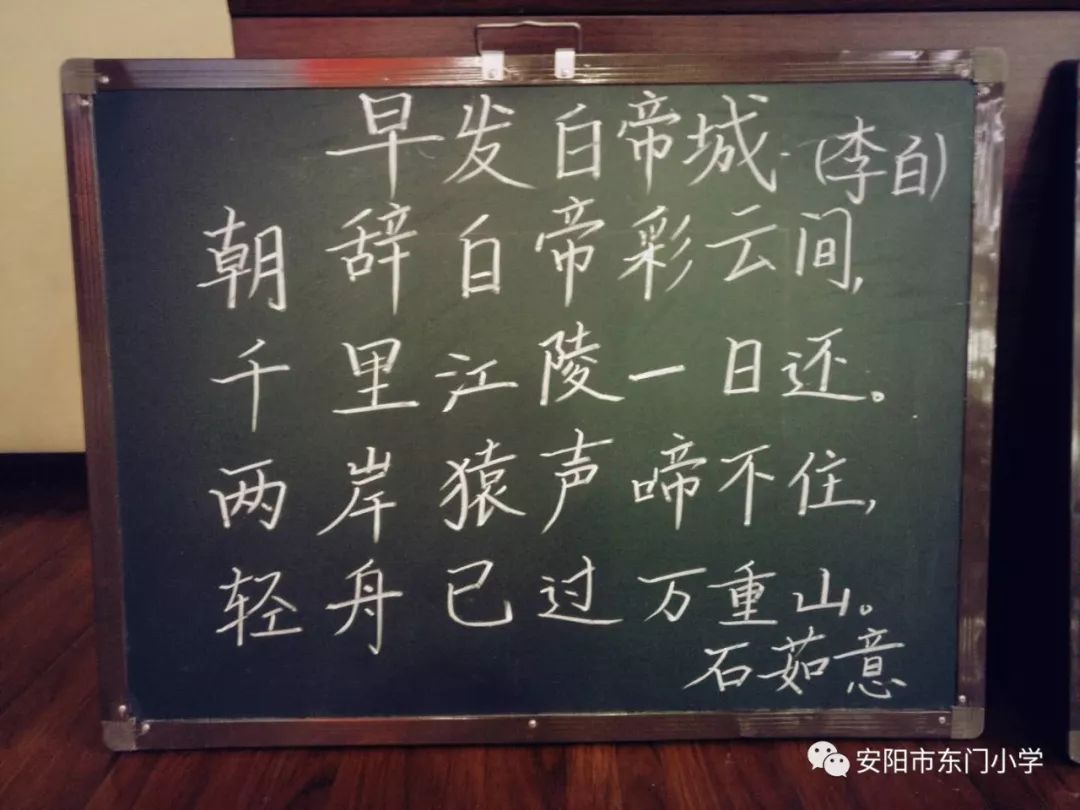 早发白帝城 (李白)
朝辞白帝彩云间,
千里江陵一日还。
两岸猿声啼不住,
轻舟已过万重山。
石茹意
安阳市东门小学